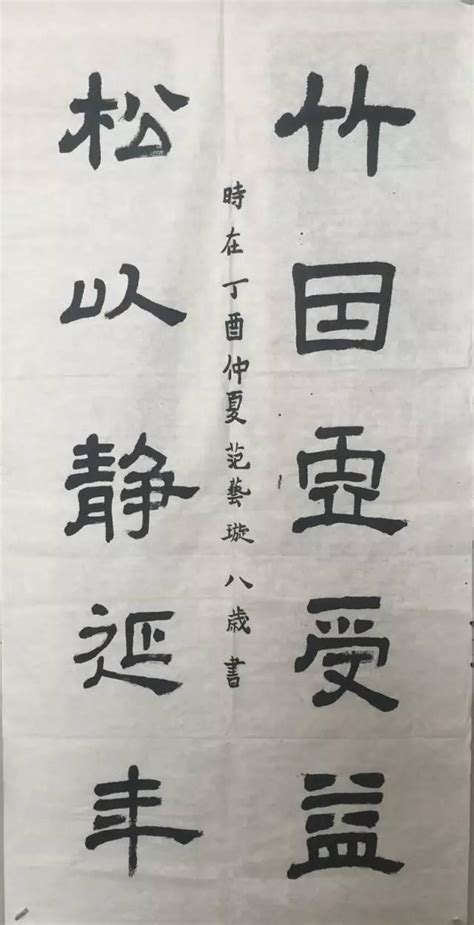 竹因虚受益
松以静延年
時在丁酉仲夏范藝璇八歳書